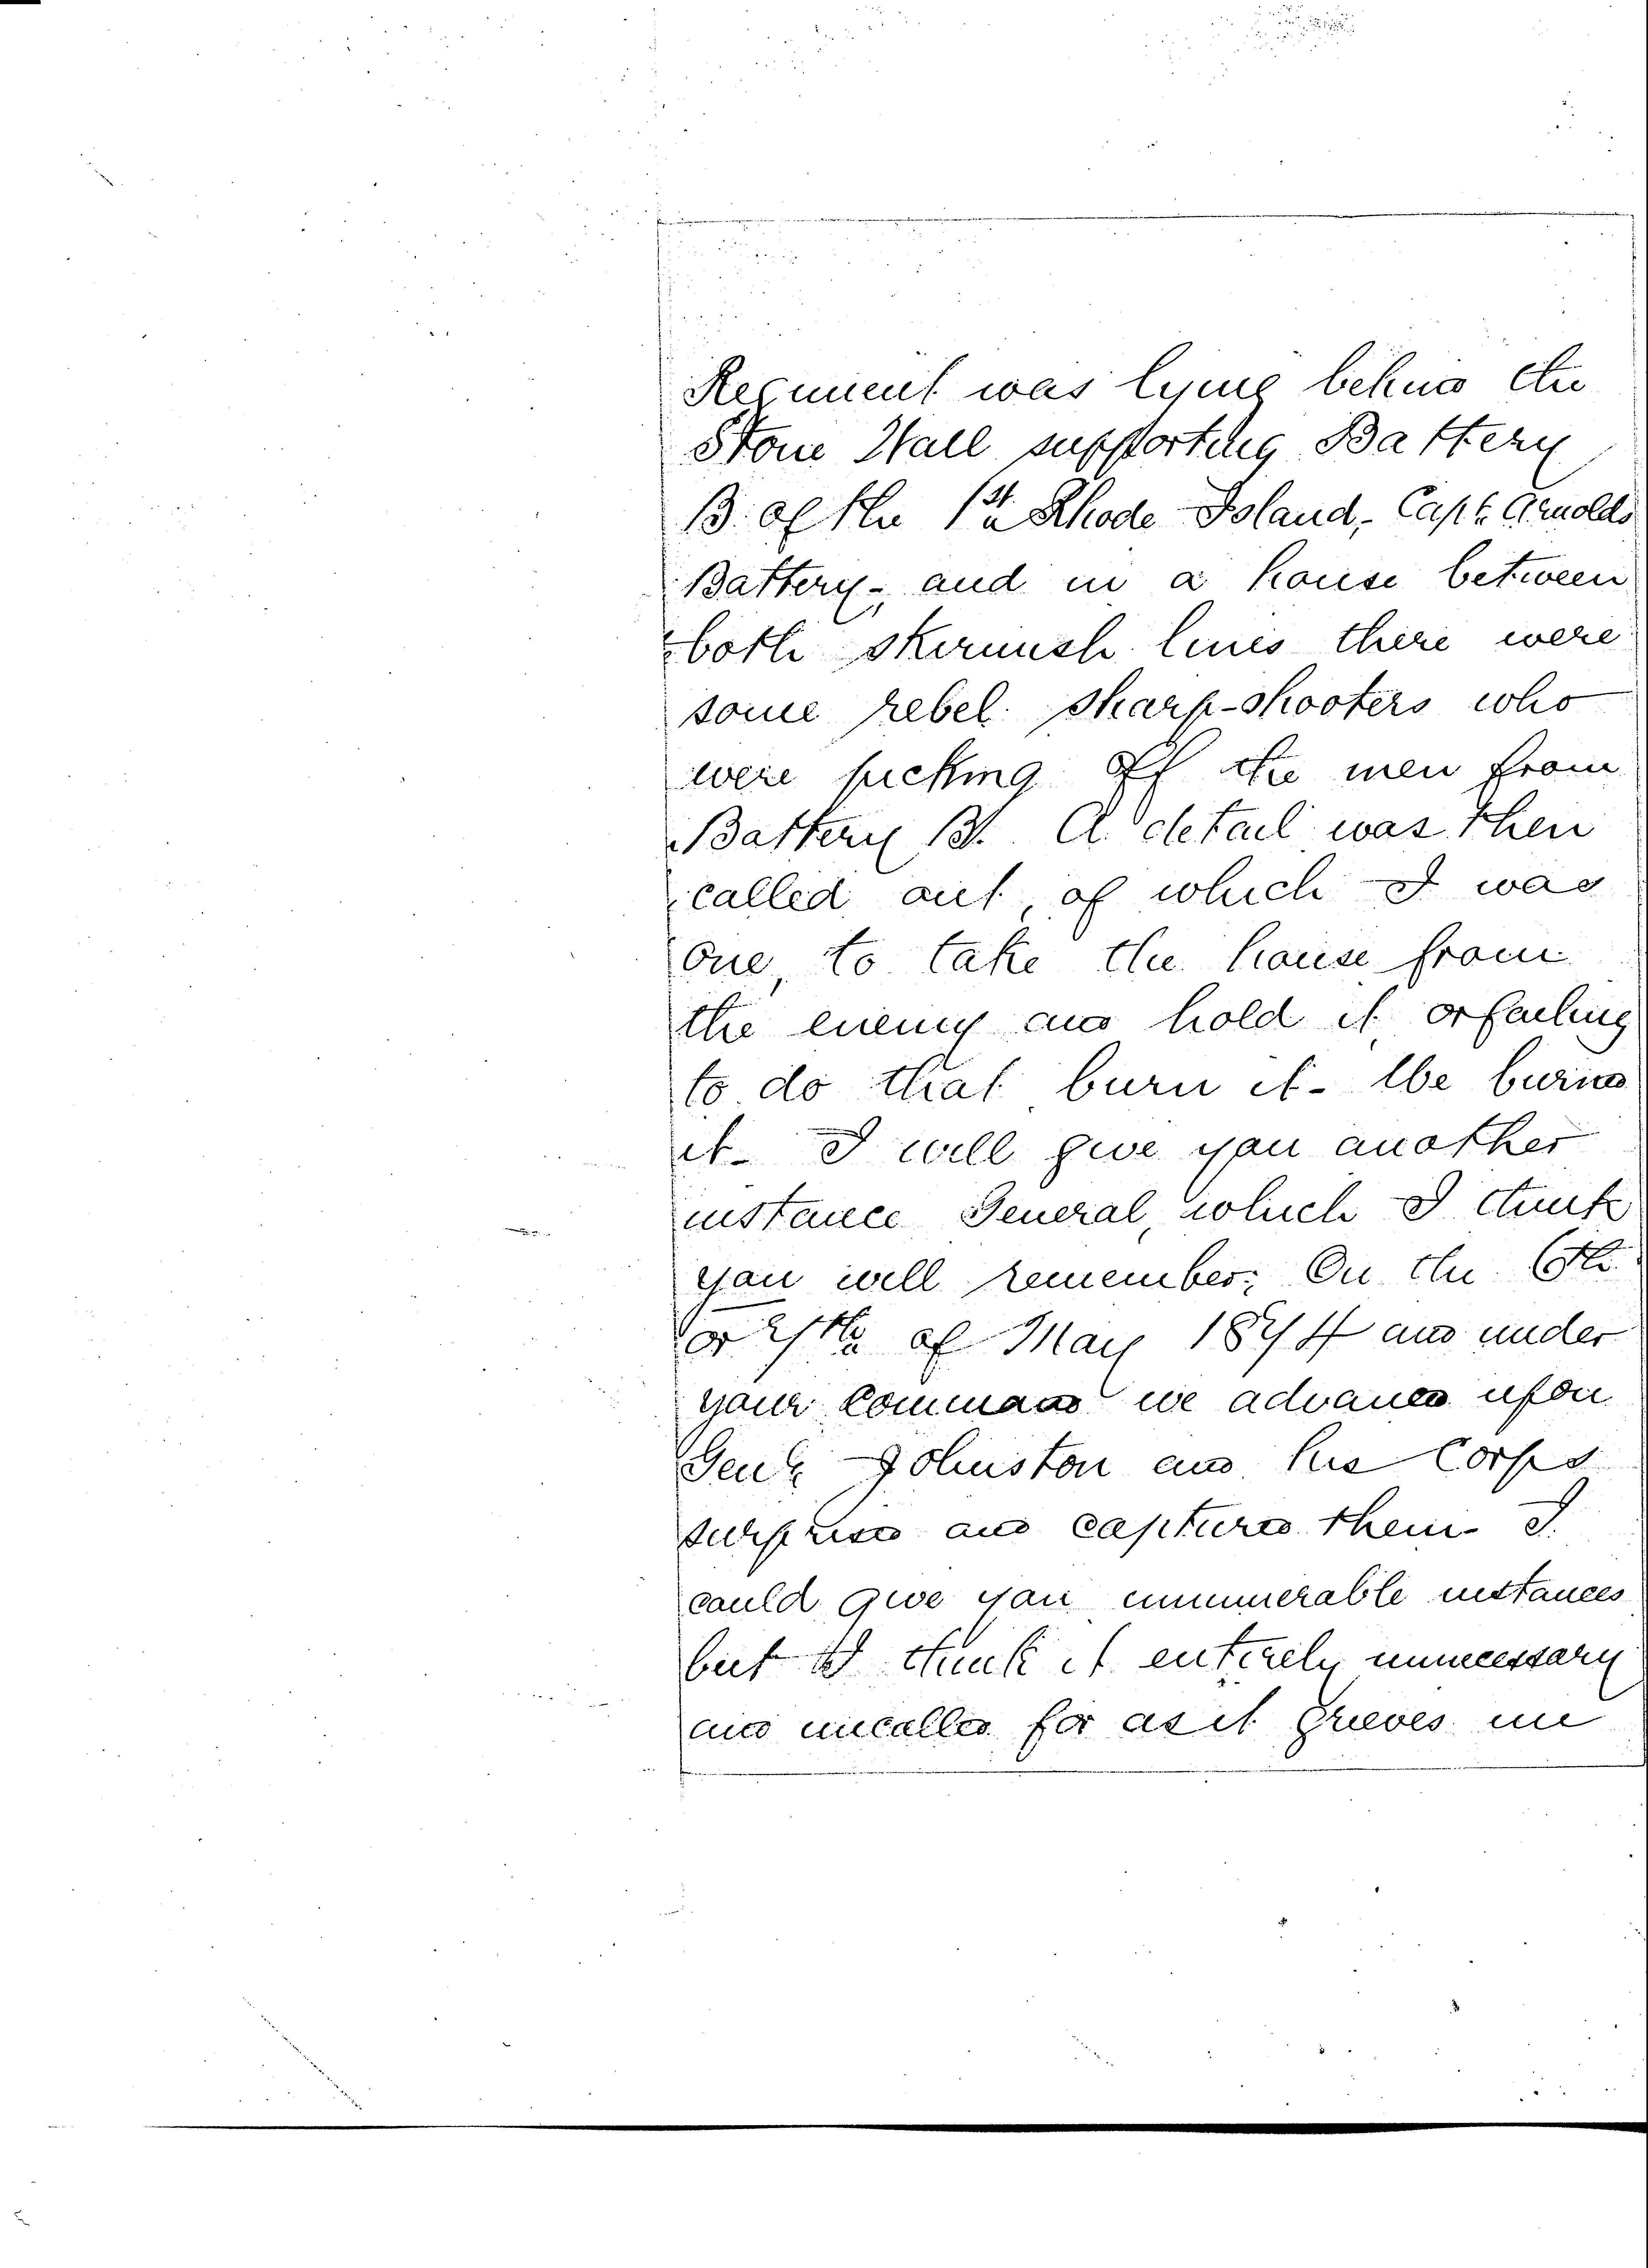 Regiment was lying behind the
Stone Wall supporting Battery
B. of the 1st Rhode Island, - Capt. Arnolds
Battery -, and in a house between
both skirmish lines there were
some rebel sharp-shooters who
were picking off the men from
Battery B. A detail was then
called out, of which I was
one, to take the house from
the enemy and hold it, or failing
to do that, burn it - We burned
it - I will give you another
instance General, which I think
you will remember: On the 6th
or 7th of May 1864 and under
your command we advanced upon
Genl. Johnston and his Corps
surprised and captured them - I
could give you innumerable instances
but I think it entirely unnecessary
and uncalled for as it grieves me